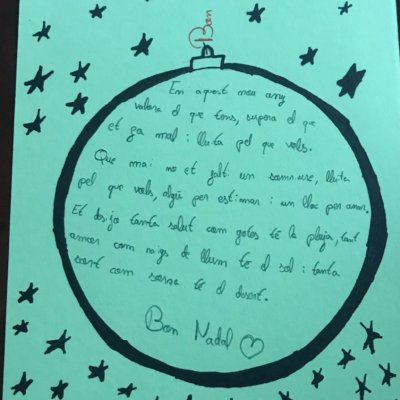 Bon
En aquest nou any
valora el que tens, supera el que
et fa mal i lluita pel que vols.
Que mai no et falti un somriure, lluita
pel que vols, algú per estimar i un lloc per anar.
Et desitjo tanta salut com gotes té la pluja, tant
amor com raigs de llum té el sol i tanta
sort com sorra té el desert.
Bon Nadal